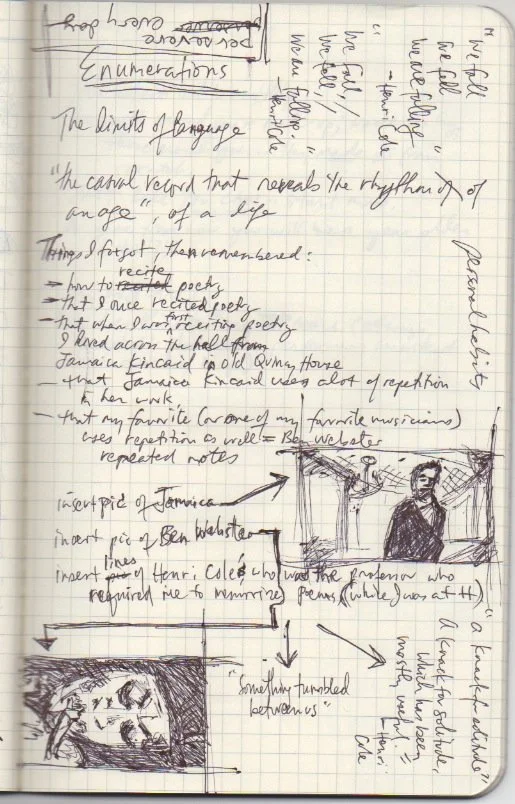 persevere
every day
Enumerations
"We fall
We fall
We are falling"
- Henri Cole
"
We fall, //
We fall, //
We are falling."
- Henri Cole
The limits of language
"the casual record that reveals the rhythm of
an age", of a life
personal habits
Things I forgot, then remembered:
- how to recited recite poetry
- that I once recited poetry
- that when I was first reciting poetry
I lived across the hall from
Jamaica Kincaid in old Quincy House
- that Jamaica Kincaid uses a lot of repetition
in her work
- that my favorite (or one of my favorite musicians)
uses repetition as well = Ben Webster
repeated notes
insert pic of Jamaica
insert pic of Ben Webster
insert pic lines of Henri Cole's who was the professor who
required me to memorize poems (while I was at H)
"Something tumbled
between us"
"a knack for solitude"
A knack for solitude,
which has been
mostly useful."
- Henri
Cole